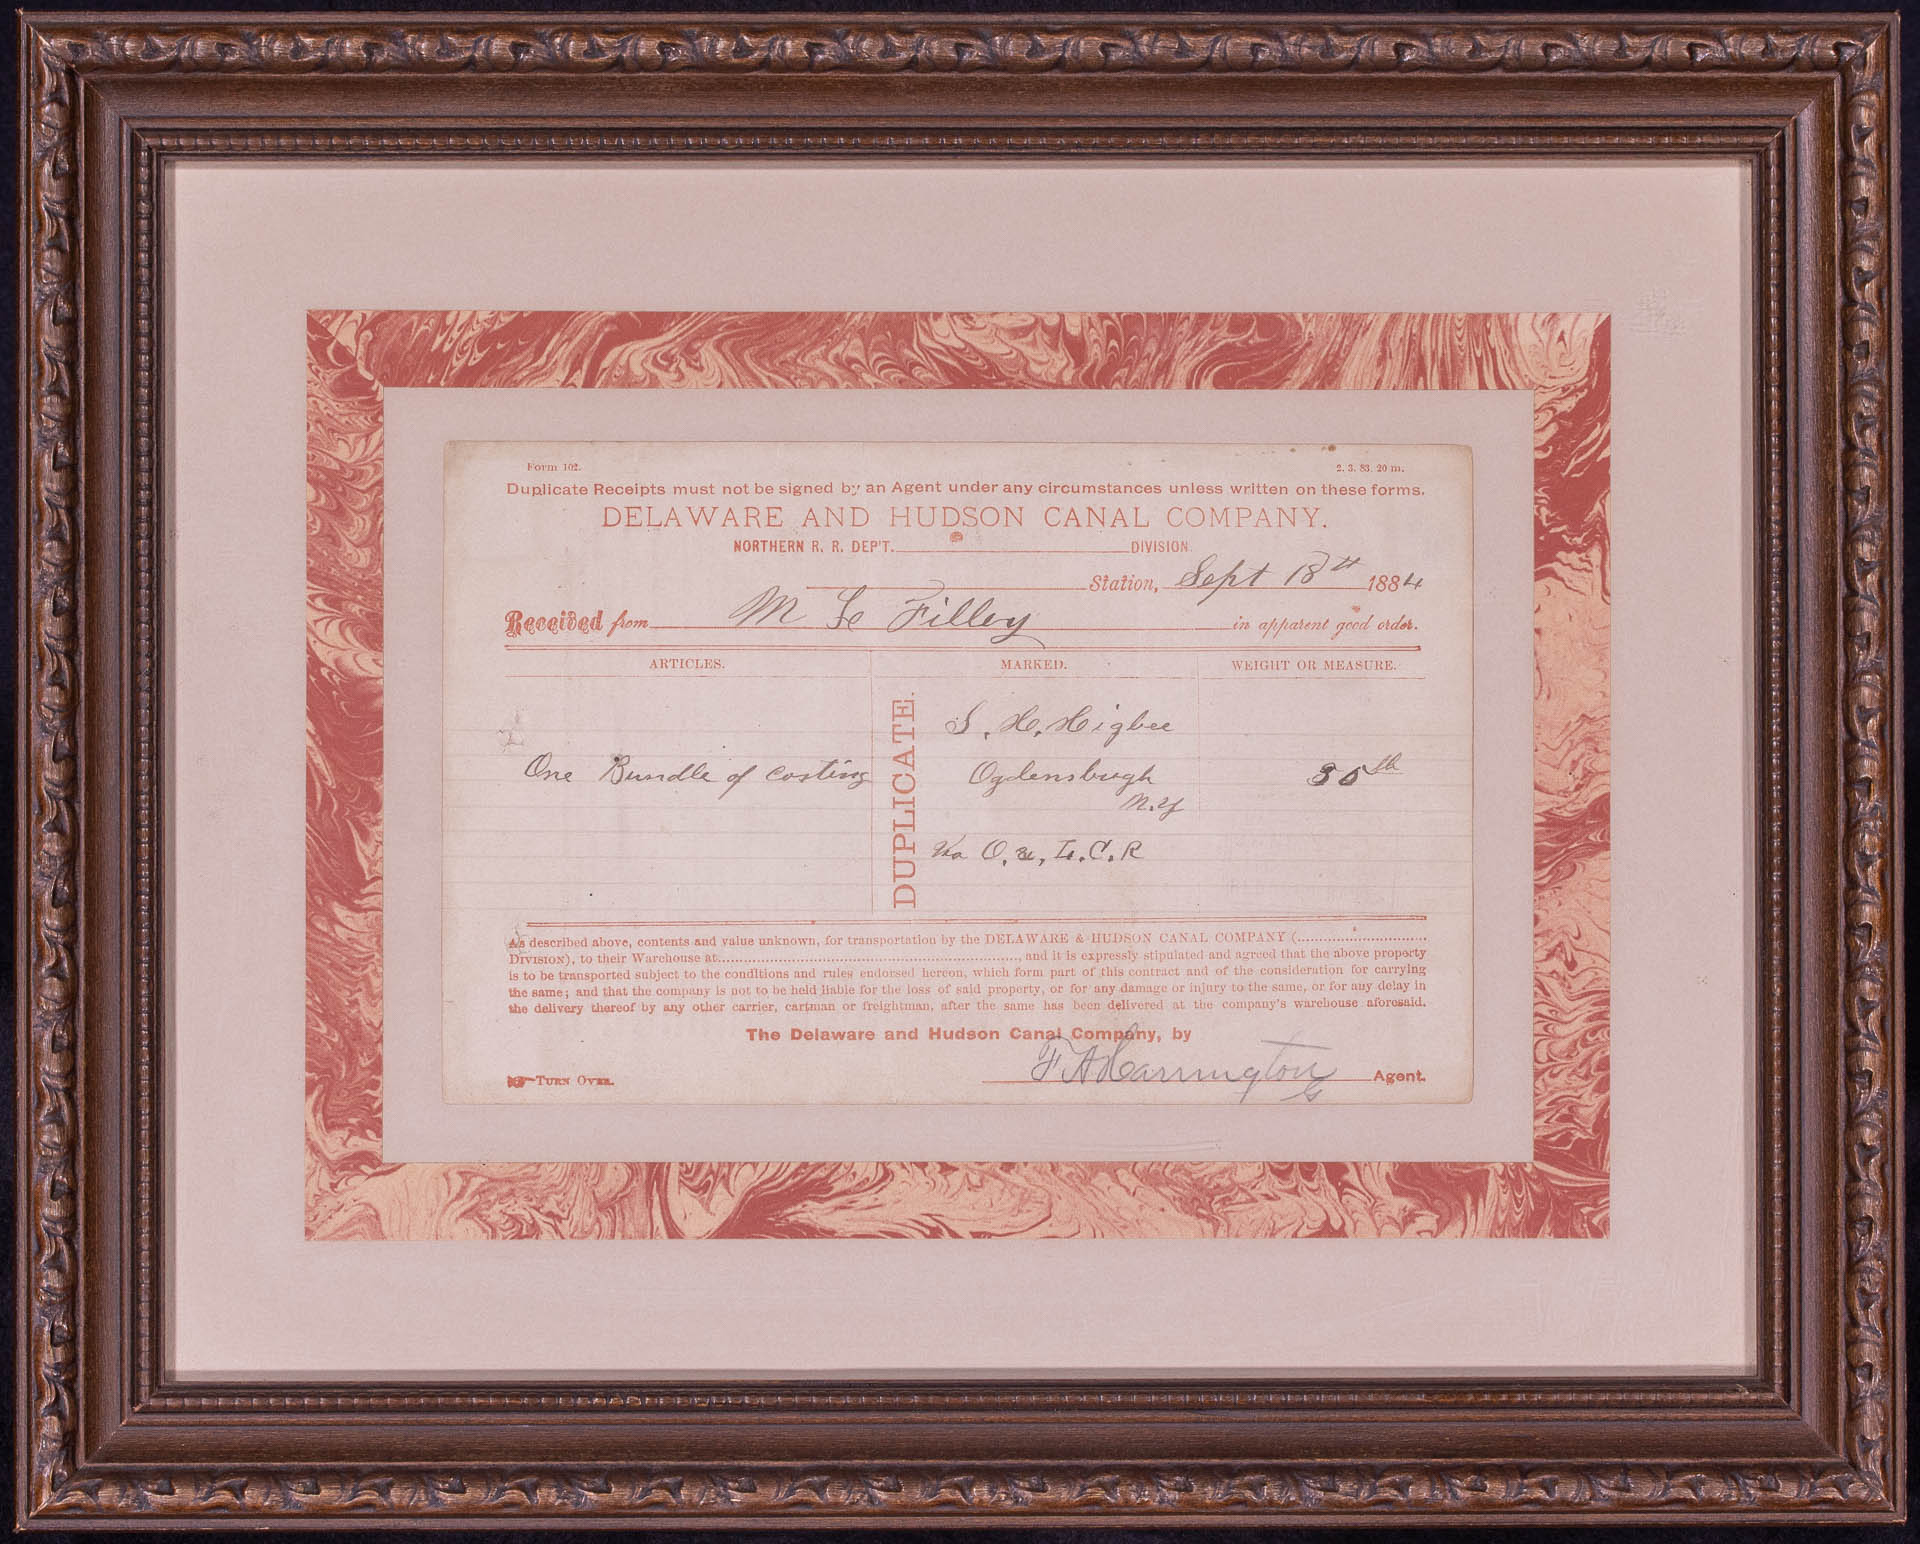 Form 102.
2. 3. 83. 20 m.
Duplicate Receipts must not be signed by an Agent under any circumstances unless written on these forms.
DELAWARE AND HUDSON CANAL COMPANY.
NORTHERN R. R. DEP'T. DIVISION.
Station, Sept 18th 1884
Received from M L Filley in apparent good order.
ARTICLES. MARKED. WEIGHT OR MEASURE.
DUPLICATE.
S. H. Higbee
One Bundle of Casting Ogdensburgh
N.Y
Via O. & L. C. R
As described above, contents and value unknown, for transportation by the DELAWARE & HUDSON CANAL COMPANY (
DIVISION), to their Warehouse at , and it is expressly stipulated and agreed that the above property
is to be transported subject to the conditions and rules endorsed hereon, which form part of this contract and of the consideration for carrying
the same; and that the company is not to be held liable for the loss of said property, or for any damage or injury to the same, or for any delay in
the delivery thereof by any other carrier, cartman or freightman, after the same has been delivered at the company's warehouse aforesaid.
The Delaware and Hudson Canal Company, by
F A Harrington
TURN OVER. Agent.